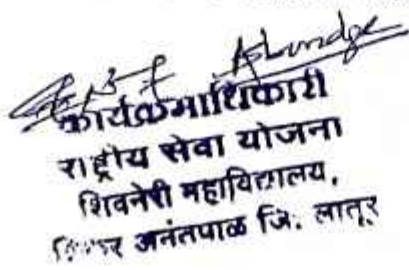 कार्यक्रमाधिकारी
राष्ट्रीय सेवा योजना
शिवनेरी महाविद्यालय,
अनंतपाळ जि. लातूर